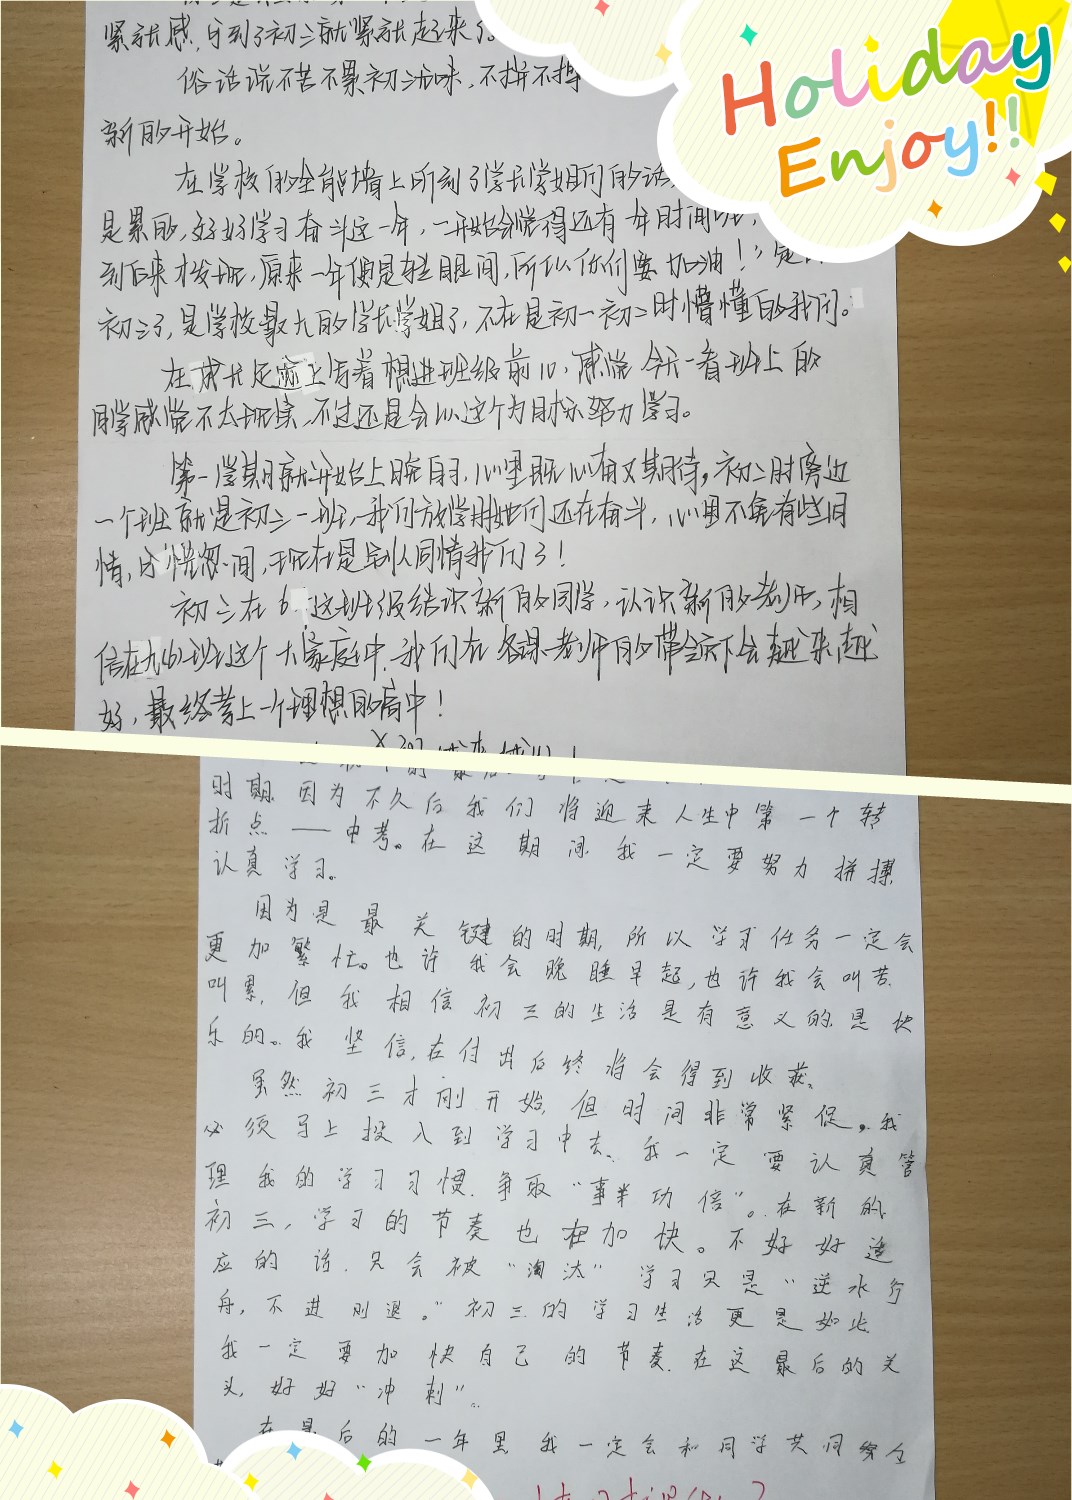 紧张感，到了初三就紧张起来了。
俗话说不苦不累初三无味，不拼不搏
新的开始。
在学校的全能墙上所刻了学长学姐们的话
是累的，好好学习奋斗这一年，一开始会觉得还有一年时间呢，
到后来才发现，原来一年便是转眼间，所以你们要加油！”是
初三了，是学校最大的学长学姐了，不在是初一初二时懵懂的我们。
在成长足迹上写着想进班级前10，感觉今天一看班上的
同学感觉不太现实，不过还是会以这个为目标努力学习。
第一学期就开始上晚自习，心里既心有又期待，初二时旁边
一个班就是初三一班，我们放学时她们还在奋斗，心里不免有些同
情，恍忽间，现在是别人同情我们了！
初三在6这班级结识新的同学，认识新的老师，相
信在九(6)班这个大家庭中，我们在各课老师的带领下会越来越
好，最终考上一个理想的高中！
Holiday
Enjoy!!
时期.因为不久后我们将迎来人生中第一个转
折点——中考。在这期间.我一定要努力拼搏,
认真学习。
因为是最关键的时期,所以学习任务一定会
更加繁忙。也许我会晚睡早起,也许我会叫苦
叫累,但我相信初三的生活是有意义的.是快
乐的。我坚信,在付出后终将会得到收获。
虽然初三才刚开始,但时间非常紧促,我
必须马上投入到学习中去、我一定要认真管
理我的学习习惯.争取“事半功倍”。在新的
初三,学习的节奏也在加快。不好好适
应的话.只会被“淘汰”学习只是“逆水行
舟,不进则退。”初三的学习生活更是如此
我一定要加快自己的节奏.在这最后的关
头,好好“冲刺”。
在最后的一年里我一定会和同学共同